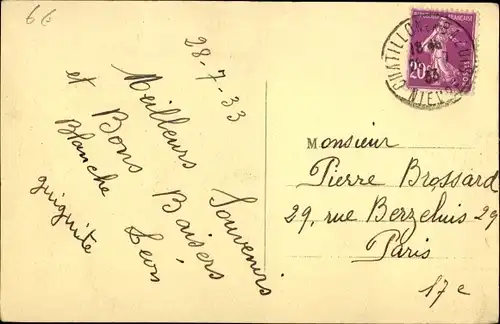 6€
28-7-33
Meilleurs Souvenirs
et Bons Baisers,
Blanche Leon
guiguite
FRANÇAISE
20c
CHATILLON
NIEVRE
Monsieur
Pierre Brossard
29, rue Berzelius 29
Paris
17e